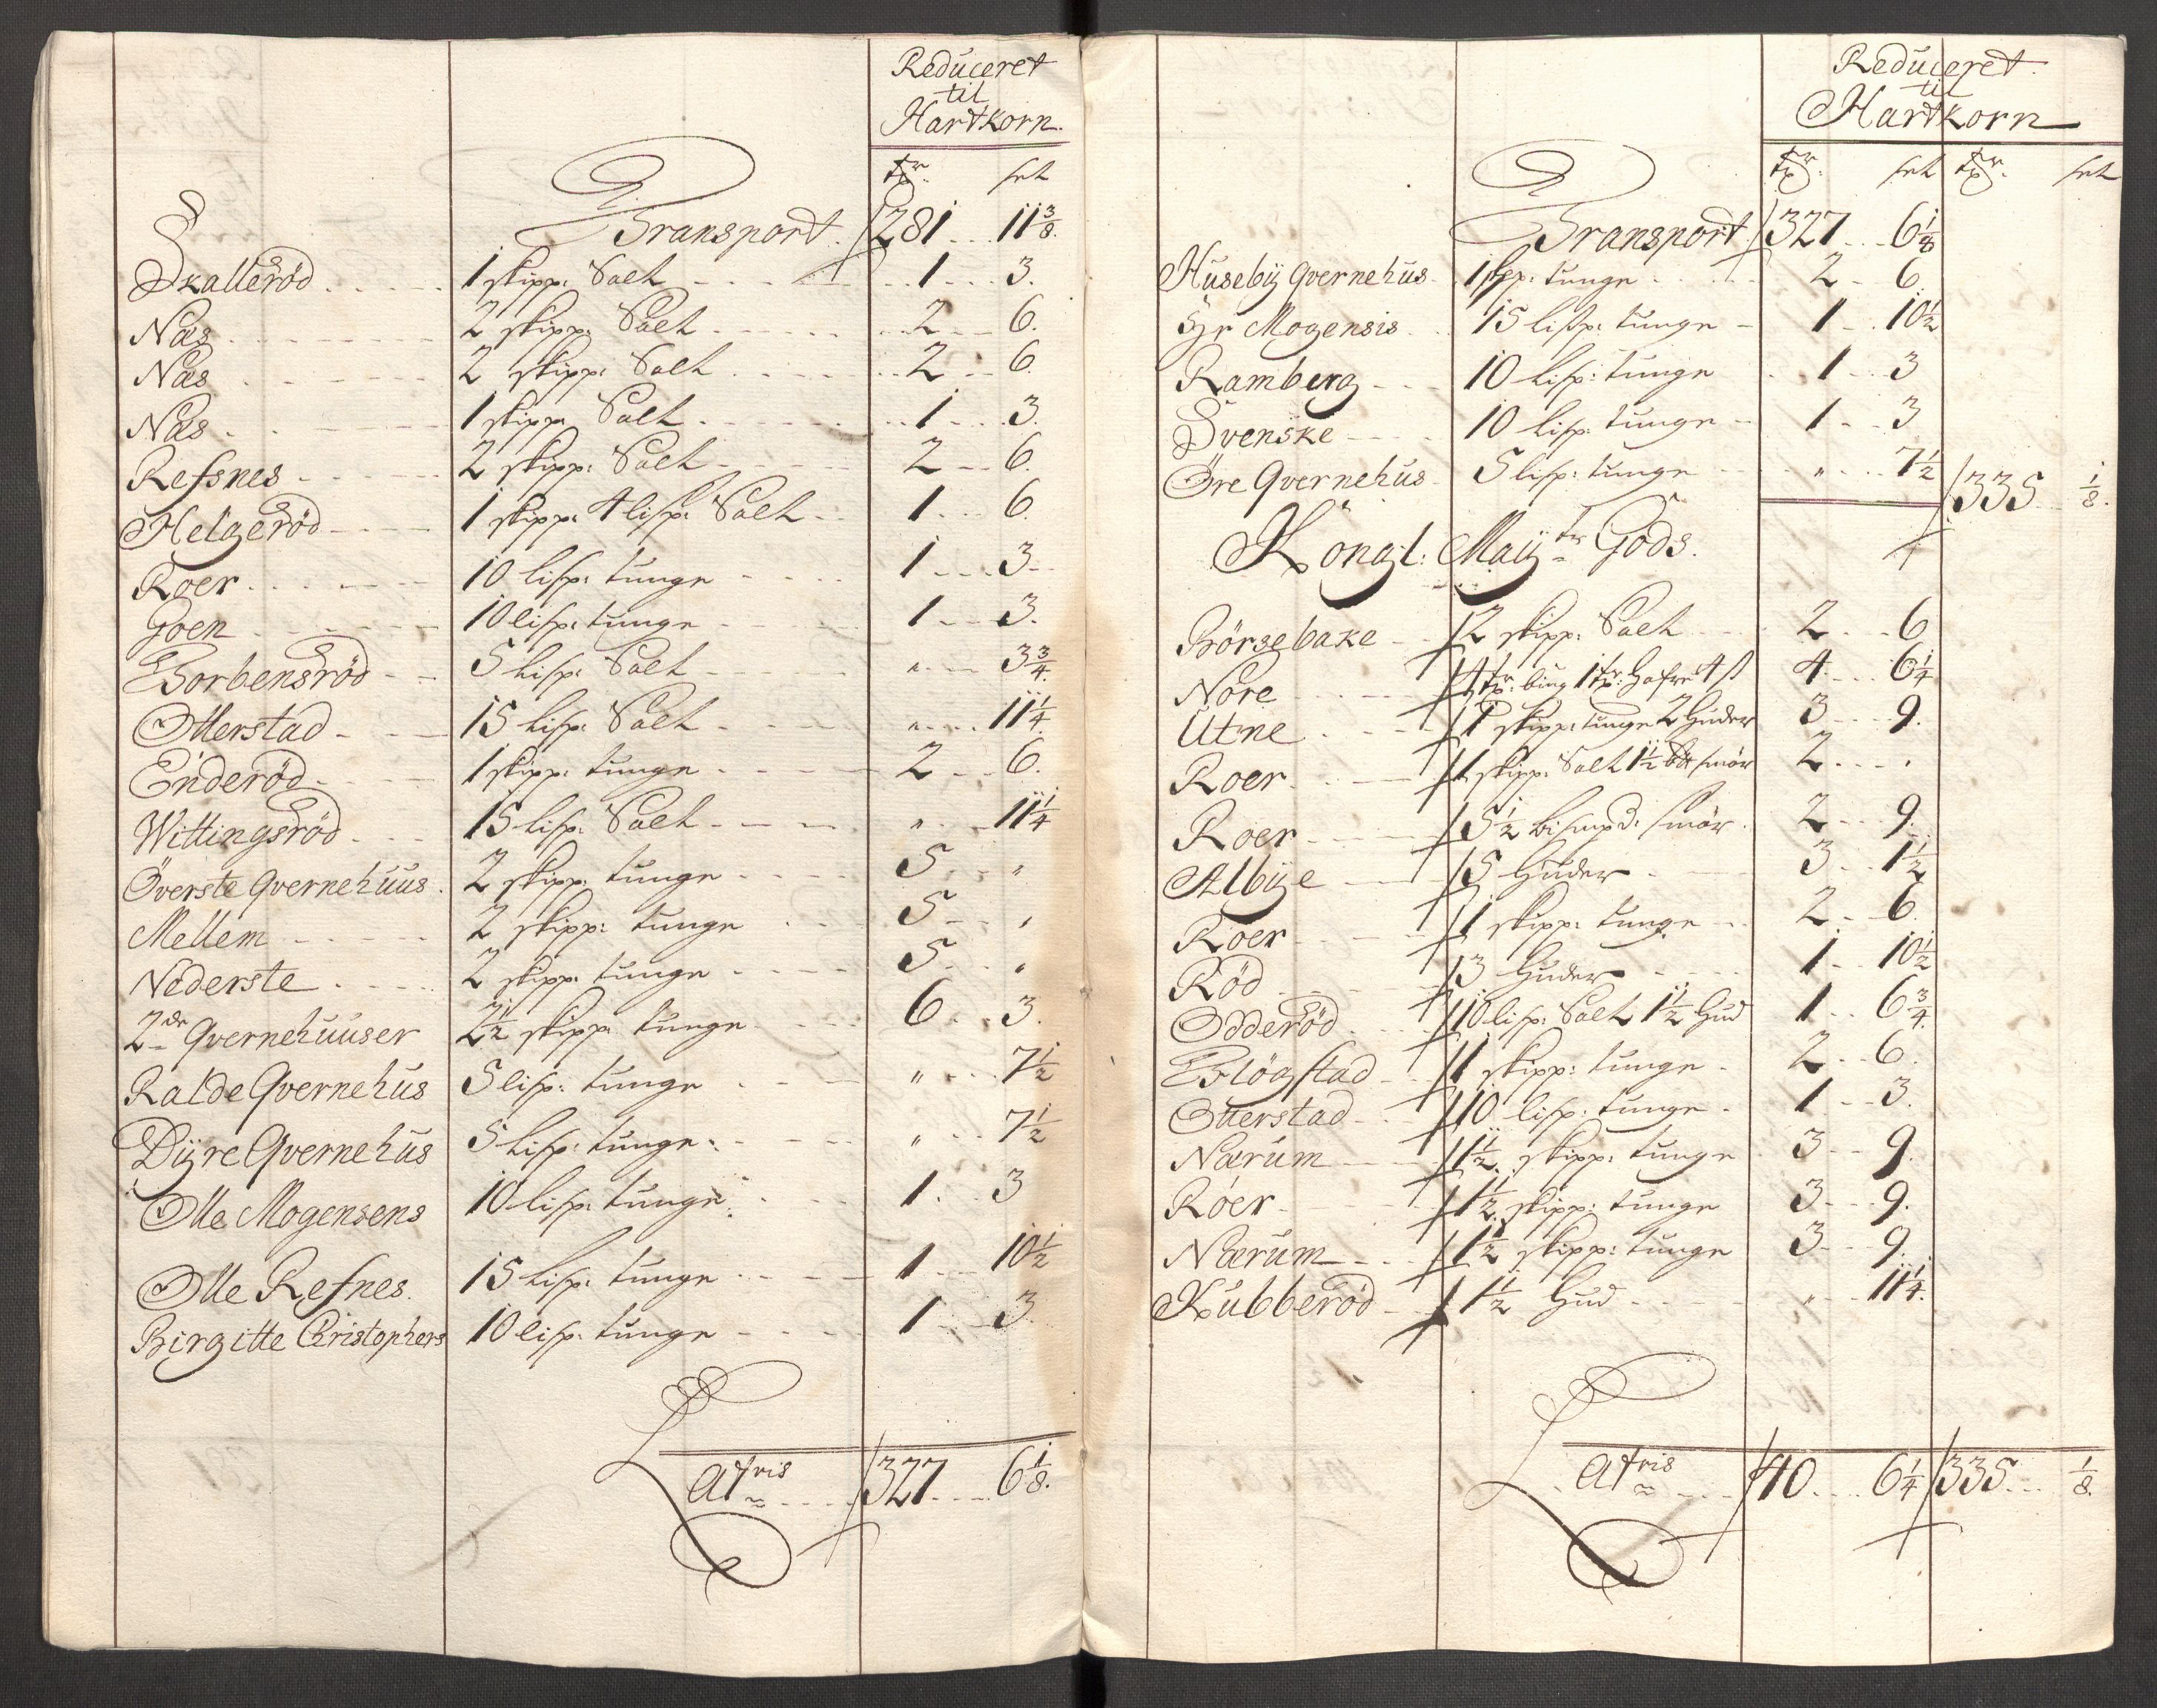 Reduceret
til
Hartkorn.
tr. sch
Transport. 281 .. 11 3/8.
Skalleröd ..... 1 skipp: Salt .... 1 ... 3.
Næs ..... 2 skipp: Salt .... 2 ... 6.
Næs ..... 2 skipp: Salt .... 2 ... 6
Næs ..... 1 skipp: Salt .... 1 ... 3.
Refsnes ..... 2 skipp: Salt .... 2 ... 6.
Helgeröd .... 1 skipp: 4 lisp: Salt .. 1 ... 6.
Roer ..... 10 lisp: tunge .... 1 ... 3
Goen ..... 10 lisp: tunge .... 1 ... 3.
Torbensröd .. 5 lisp: Salt .... „ ... 3 3/4.
Otterstad .... 15 lisp: Salt .... „ ... 11 1/4
Enderöd .... 1 skipp: tunge .... 2 ... 6.
Wittingsröd ... 15 lisp: Salt .... „ ... 11 1/4
Överste Qvernehuus. 2 skipp: tunge .... 5 ... „
Mellem ..... 2 skipp: tunge ... 5 ... „
Nederste ..... 2 skipp: tunge .... 5 ... „
2de Qvernehuuser 2 1/2 skipp: tunge ... 6 ... 3.
Ralde Qvernehus 5 lisp: tunge ... „ ... 7 1/2
Dyre Qvernehus 5 lisp: tunge ... „ ... 7 1/2
Olle Mogensens 10 lisp: tunge ... 1 ... 3
Olle Refnes. 15 lisp: tunge .... 1 ... 10 1/2
Birgitte Christophers 10 lisp: tunge .... 1 ... 3.
Latris .... 327 ... 6 1/8.
Reduceret
til
Hartkorn
tr. sch tr. sch
Transport 327 ... 6 1/8
Huseby Qvernehus. 1 skpp: tunge .... 2 .. 6
Hr Mogensis .. 15 lisp: tunge .. 1 .. 10 1/2
Ramberg ... 10 lisp: tunge .. 1 .. 3
Svenske .... 10 lisp: tunge .. 1 .. 3
Öre Qvernehus. 5 lisp: tunge .. „ ... 7 1/2 335 ... 1/8.
Kongl: Mayts Gods.
Börsebake .. 2 skipp: Salt ... 2 ... 6
Nore ..... 4 tr: biug 1 tr: Hafre 4 s 4 ... 6 1/4
Utne .... 1 skipp: tunge 2 Huder 3 ... 9.
Roer .... 1 skipp: Salt 1 1/2 smör 2 ... .
Roer .... 5 1/2 bismpd: smör. 2 ... 9.
Albye .... 5 Huder .... 3 ... 1 1/2
Roer .... 1 skipp: tunge .. 2 ... 6.
Röd .... 3 Huder .... 1 ... 10 1/2
Odderöd ... 10 lisp: Salt 1 1/2 Hud 1 ... 6 3/4
Slögstad .. 1 skipp: tunge . 2 ... 6.
Otterstad .. 10 lisp: tunge . 1 ... 3.
Nærum .... 1 1/2. skipp: tunge . 3 ... 9.
Röer .... 1 1/2. skipp: tunge 3 ... 9.
Nærum .... 1 1/2 skipp: tunge 3 ... 9.
Kubberöd .. 1 1/2 Hud .... „ ... 11 1/4.
Latris .... 40 ... 6 1/4 335 ... 1/8.